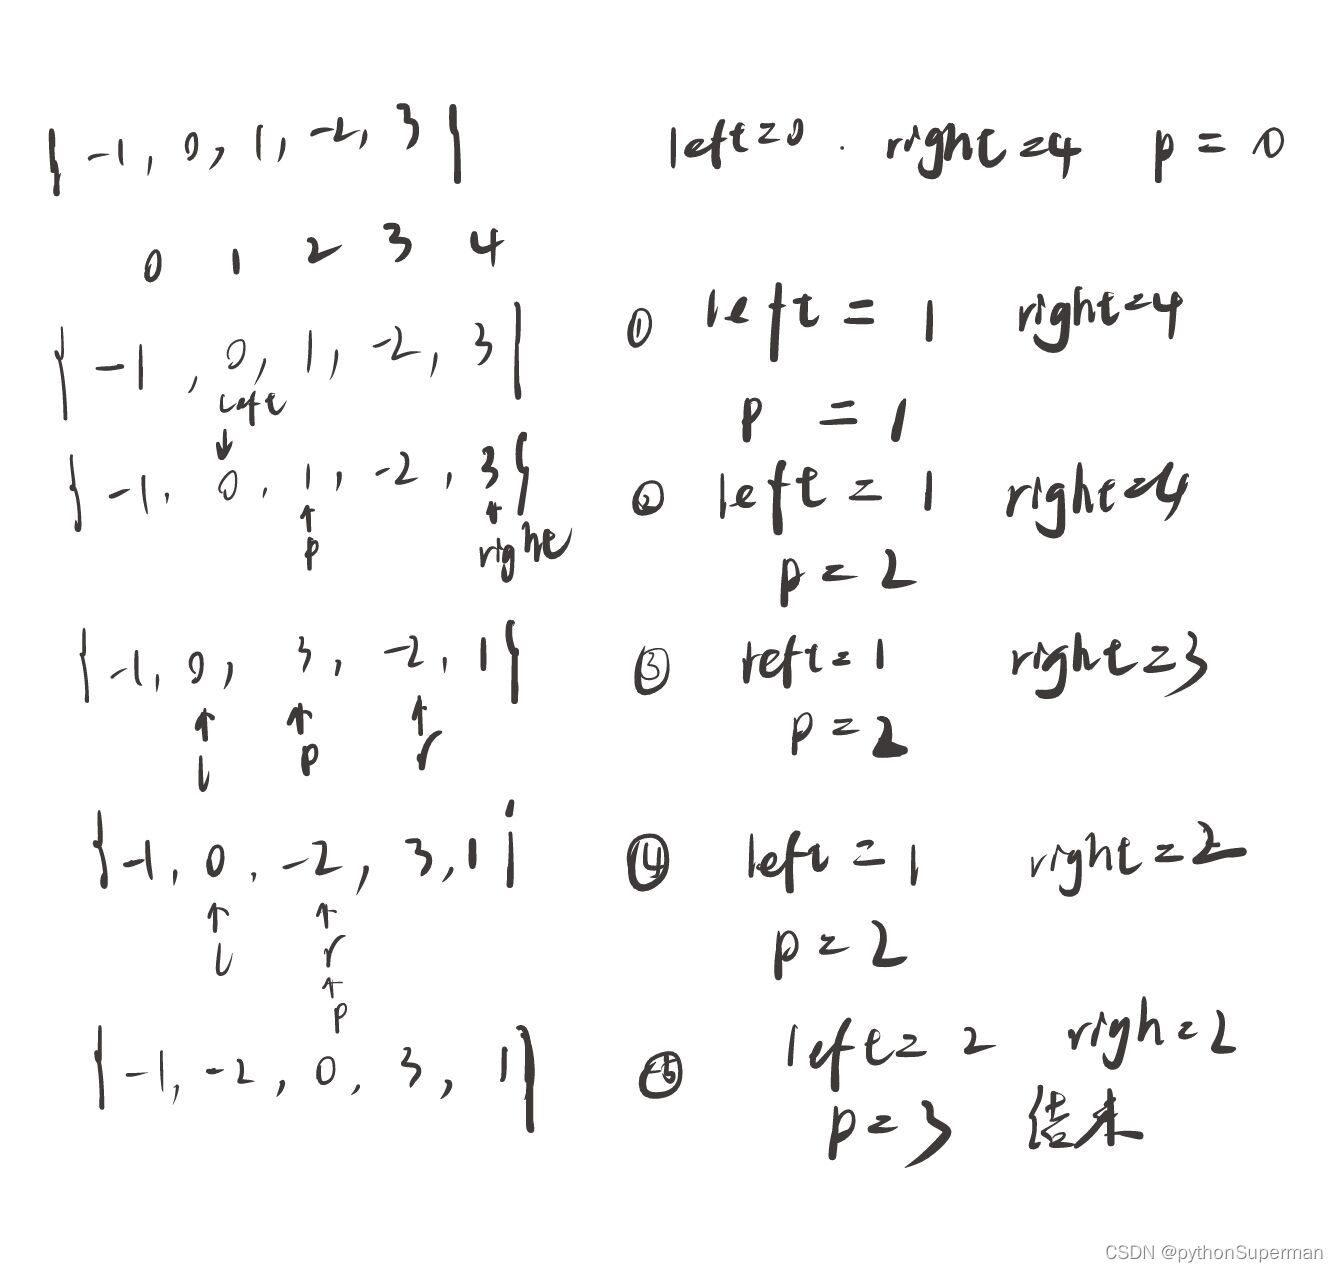 { -1, 0, 1, -2, 3 } left=0 . right=4 p = 0
0 1 2 3 4
{ -1 , 0, 1, -2, 3 } ① left = 1 right=4
left
↓ p = 1
} -1, 0, 1, -2, 3 } ② left = 1 right=4
↑ ↑
p right
p = 2
{ -1, 0, 3, -2, 1 } ③ left = 1 right=3
↑ ↑ ↑
l p r
p = 2
{ -1, 0, -2, 3, 1 } ④ left = 1 right=2
↑ ↑
l r
p = 2
↑
p
{ -1, -2, 0, 3, 1 } ⑤ left= 2 righ=2
p=3 结束
CSDN @pythonSuperman